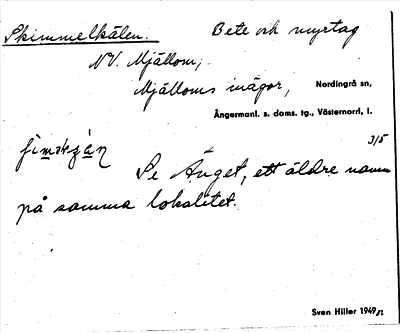 Skimmelkälen. Bete och myrtag
NV. Mjällom,
Mjälloms inägor, Nordingrå sn,
Ångermanl. s. doms. tg., Västernorrl. l.
3/5
Se Änget, ett äldre namn
på samma lokalitet.
Sven Hiller 1949